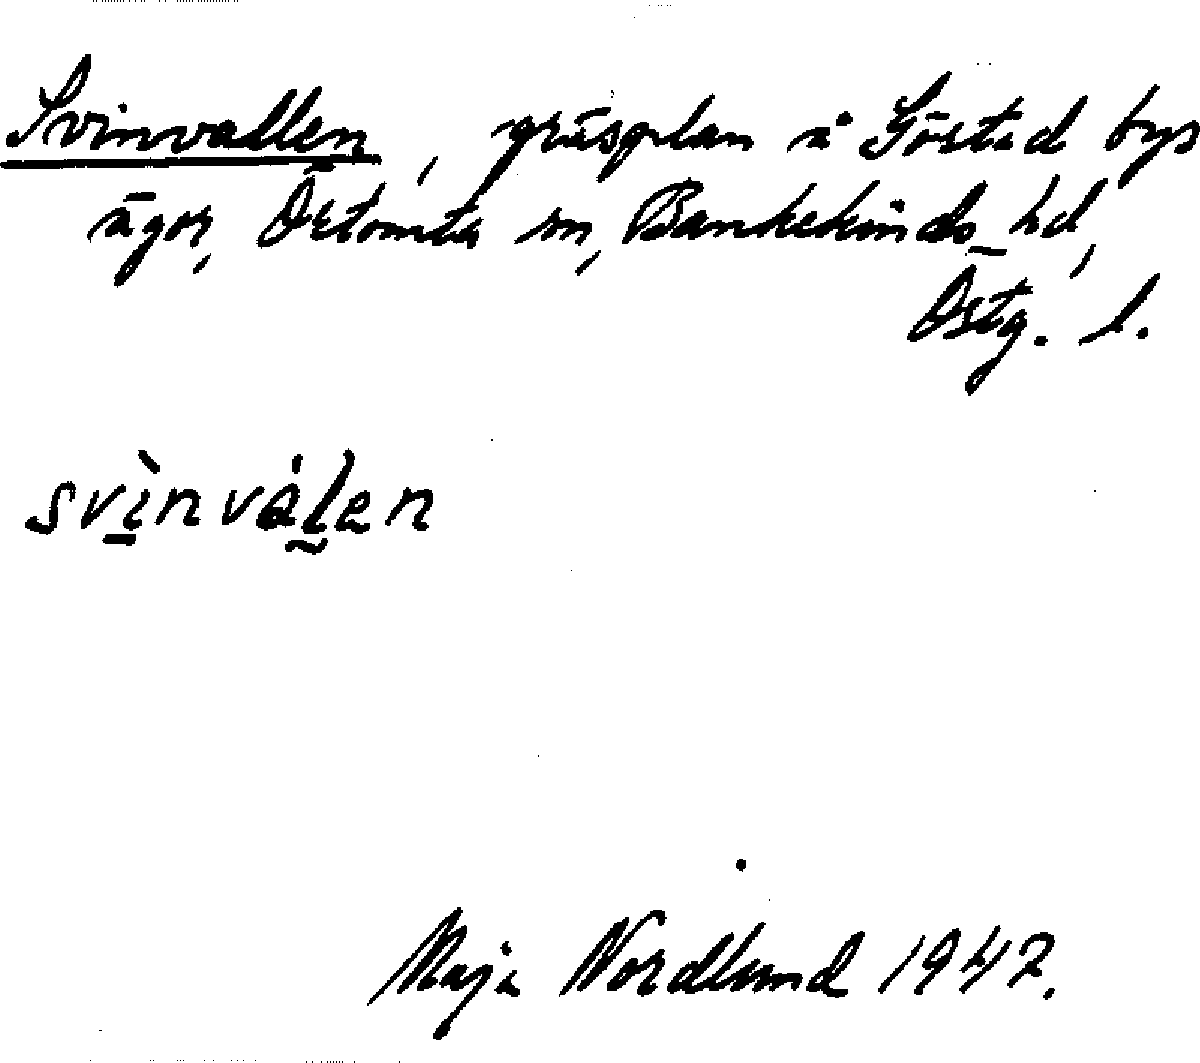 Svinvallen, gräsplan å Görstad bys
ägor, Örtomta sn, Bankekinds hd,
Östg. l.
svìnválen
Maja Nordlund 1947.